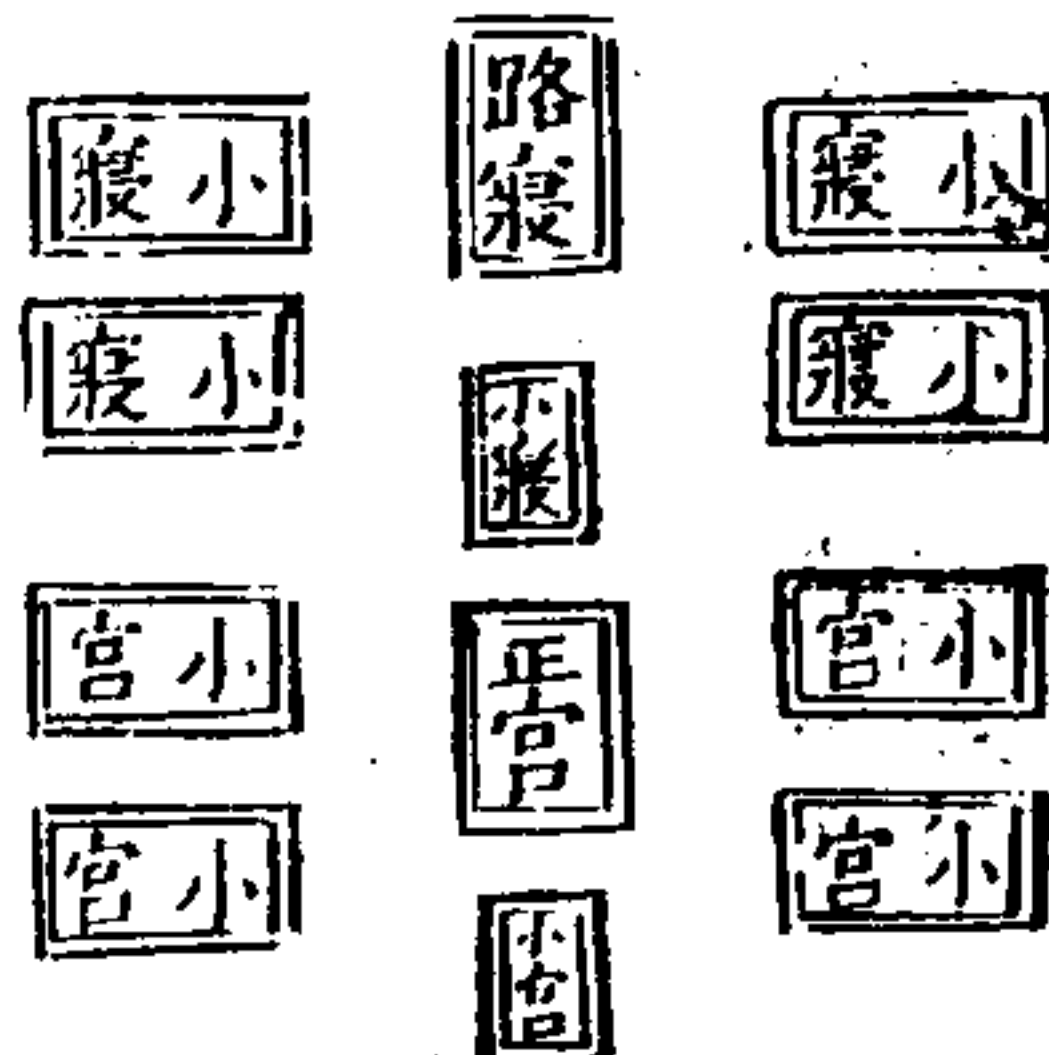 小寢
小寢
小宮
小宮
路寢
小寢
正宮
小宮
小寢
小寢
小宮
小宮